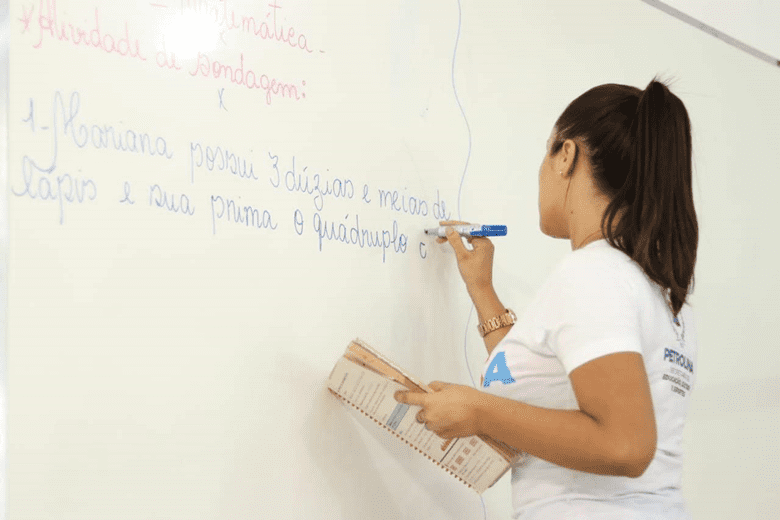 - Matemática -
* Atividade de Sondagem:
x
1- Mariana possui 3 dúzias e meias de
lápis e sua prima o quádruplo
A
PETROLINA